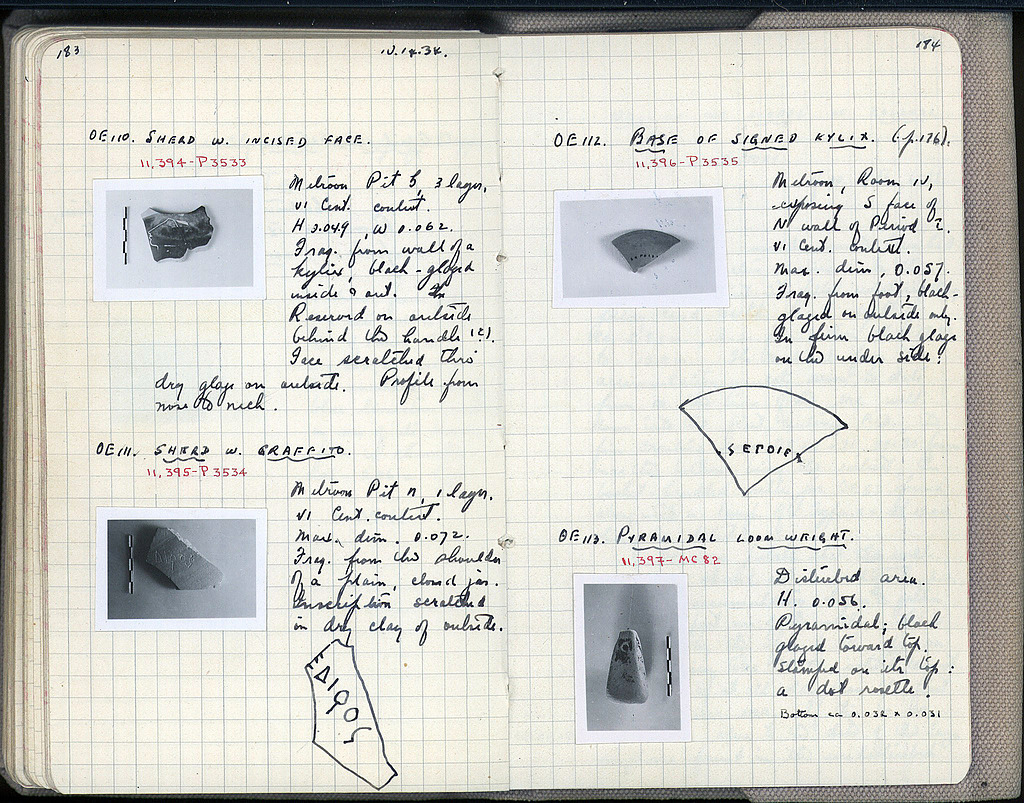 183
OE 110. SHERD W. INCISED FACE.
11,394-P 3533
Metroon Pit 5, 3 layer,
VI Cent. context.
H 0.049, W 0.062.
Frag. from wall of a
kylix, black-glazed
inside & out.
Reserved on outside
behind the handle (?).
Face scratched thro'
dry glaze on outside. Profile from
nose to neck.
OE 111. SHERD W. GRAFFITO.
11,395-P 3534
Metroon Pit n, 1 layer.
VI Cent. context.
Max. dim. 0.072.
Frag. from the shoulder
of a plain, closed jar.
Inscription scratched
in dry clay of outside.
184
OE 112. BASE OF SIGNED KYLIX. (p. 176).
11,396-P 3535
Metroon, Room IV,
exposing S face of
N wall of Period 2.
VI Cent. context.
Max. dim, 0.057.
Frag. from foot, black-
glazed on outside only.
In firm black glaze
on the under side:
OE 113. PYRAMIDAL LOOM WEIGHT.
11,397-MC 82
Disturbed area.
H. 0.056.
Pyramidal; black
glazed toward top.
Stamped on its top:
a dot rosette.
Bottom ca 0.032 x 0.031